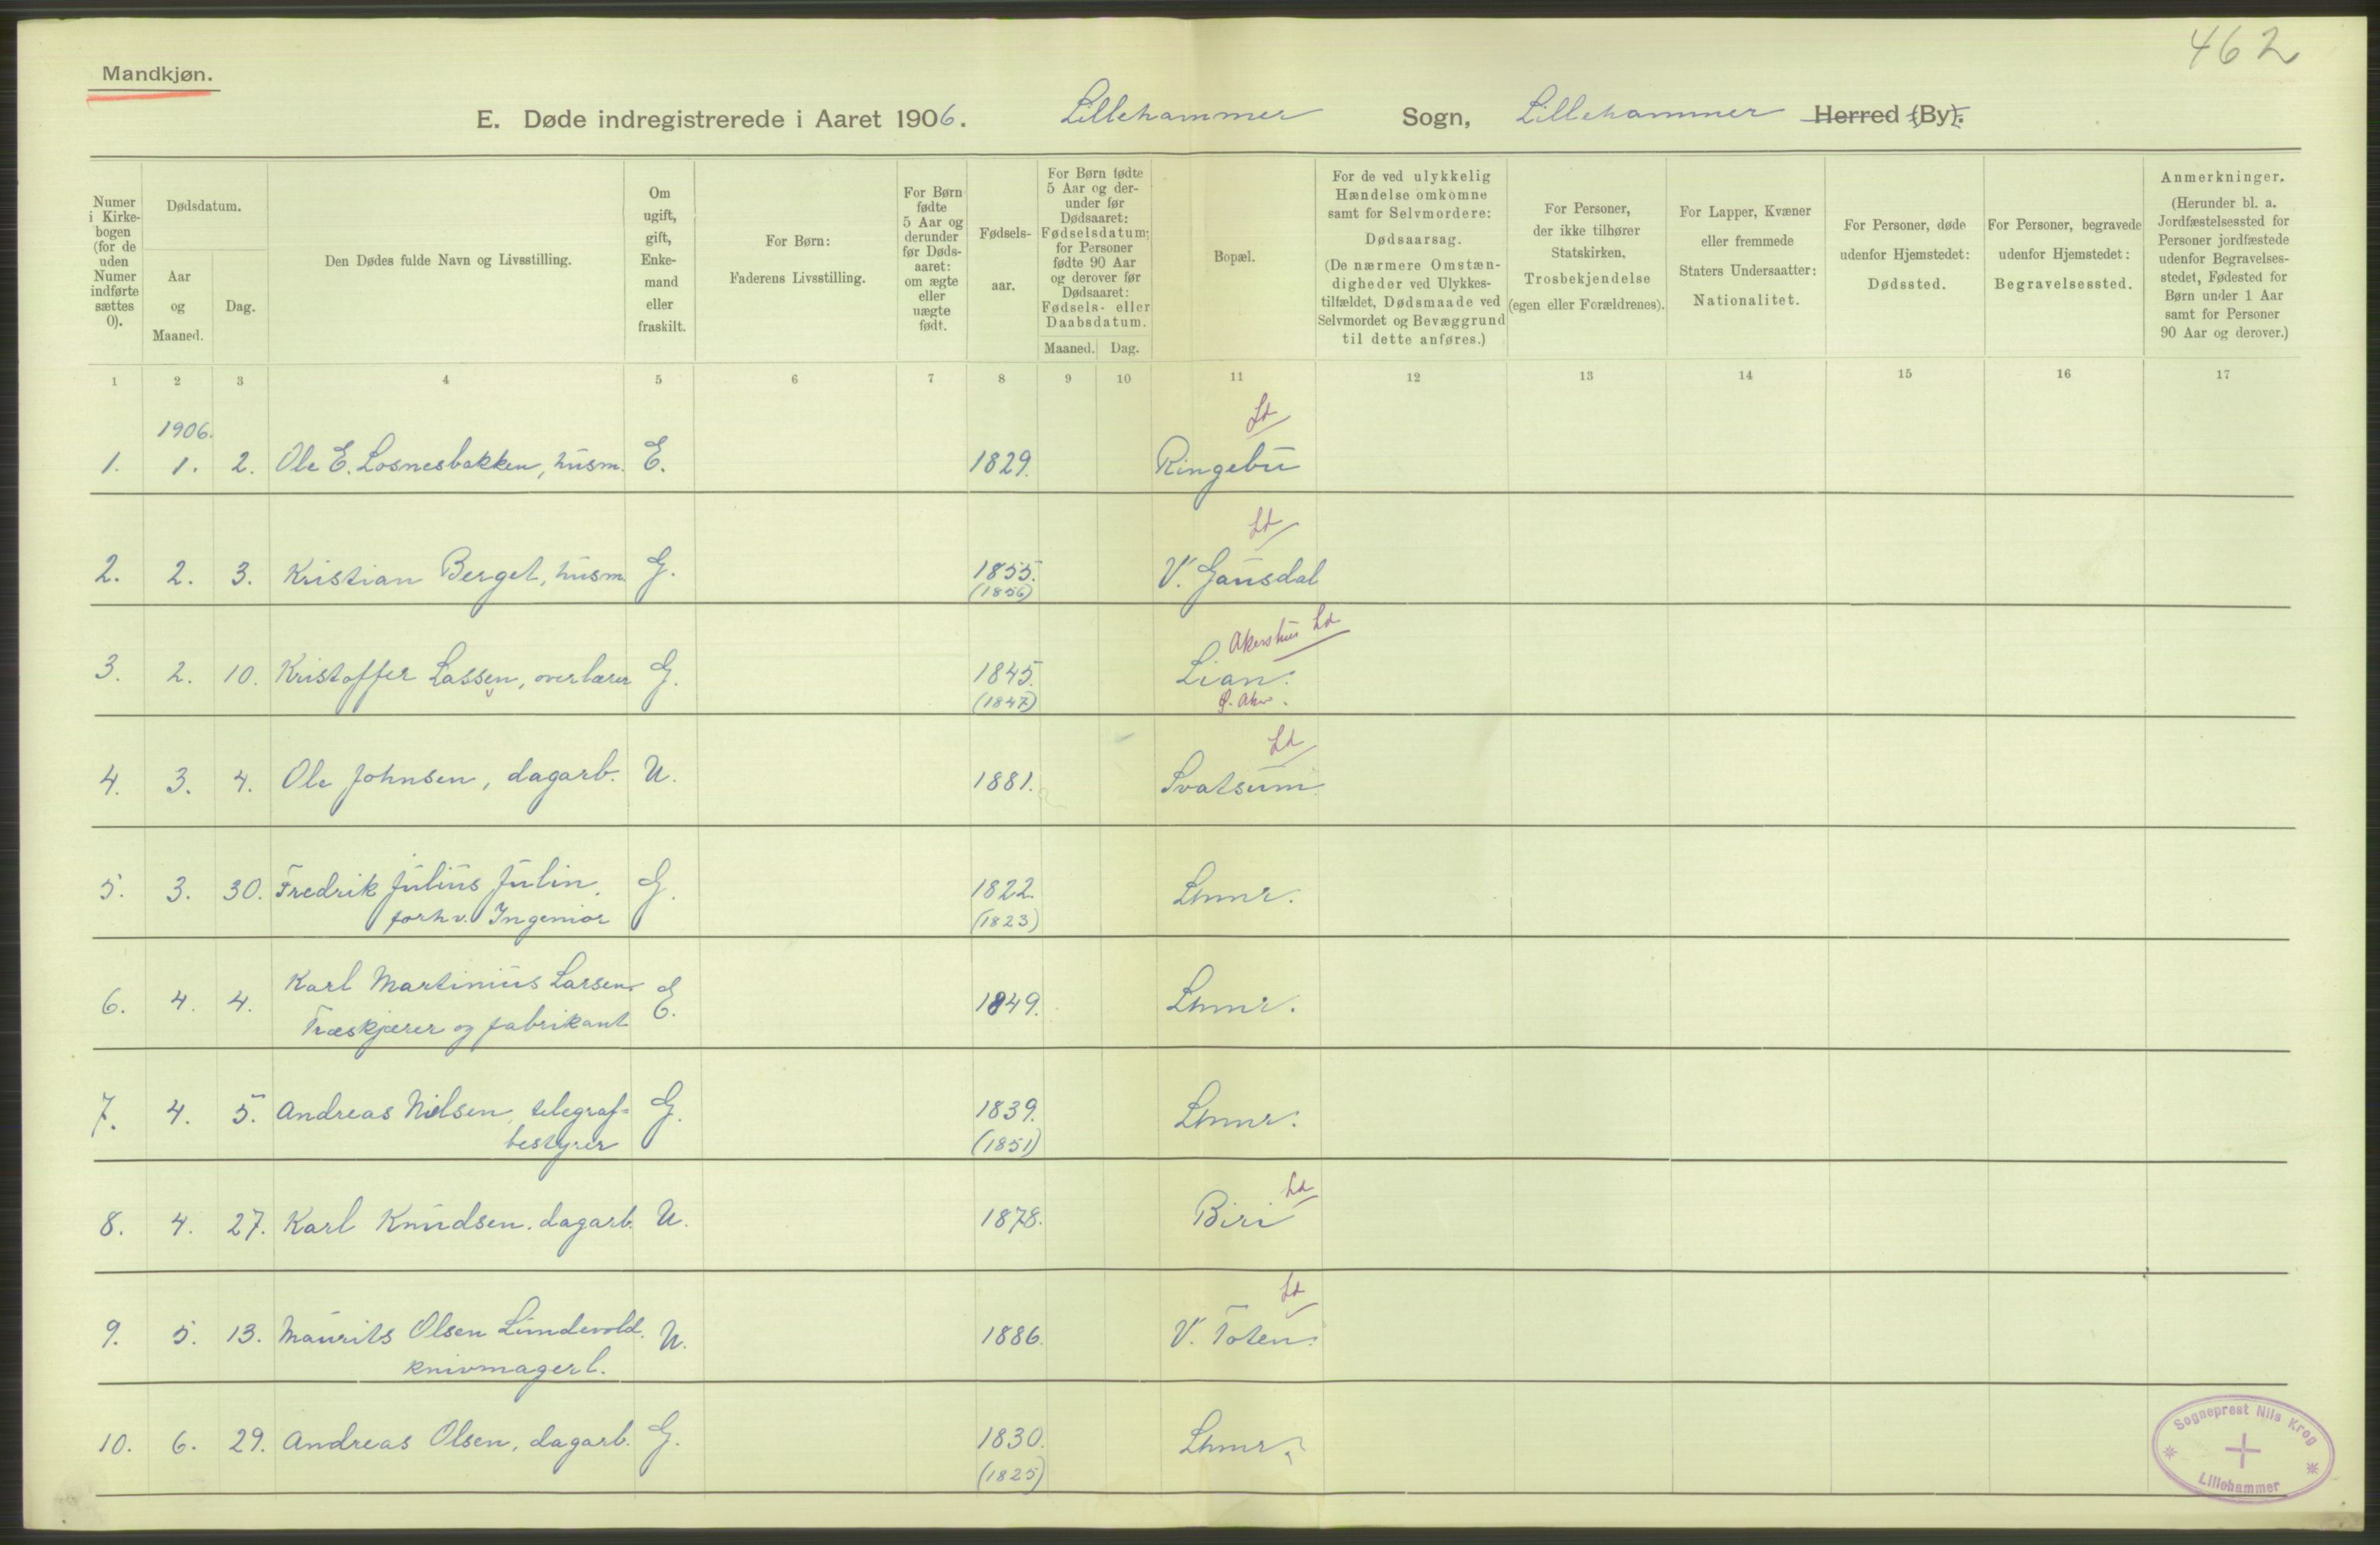 462
Mandkjøn.
E. Døde indregistrerede i Aaret 1906. Lillehammer Sogn, Lillehammer Herred (By).
Numer i Kirke-bogen (for de uden Numer indførte sættes 0).
Dødsdatum.
Aar og Maaned.
Dag.
Den Dødes fulde Navn og Livsstilling.
Om ugift, gift, Enke-mand eller fraskilt.
For Børn:
Faderens Livsstilling.
For Børn fødte 5 Aar og derunder før Døds-aaret: om ægte eller uægte født.
Fødsels-aar.
For Børn fødte 5 Aar og der-under før Dødsaaret: Fødselsdatum; for Personer fødte 90 Aar og derover før Dødsaaret: Fødsels- eller Daabsdatum.
Maaned. Dag.
Bopæl.
For de ved ulykkelig Hændelse omkomne samt for Selvmordere:
Dødsaarsag.
(De nærmere Omstæn-digheder ved Ulykkes-tilfældet, Dødsmaade ved Selvmordet og Bevæggrund til dette anføres.)
For Personer, der ikke tilhører Statskirken,
Trosbekjendelse
(egen eller Forældrenes).
For Lapper, Kvæner eller fremmede Staters Undersaatter:
Nationalitet.
For Personer, døde udenfor Hjemstedet:
Dødssted.
For Personer, begravede udenfor Hjemstedet:
Begravelsessted.
Anmerkninger.
(Herunder bl. a. Jordfæstelsessted for Personer jordfæstede udenfor Begravelses-stedet, Fødested for Børn under 1 Aar samt for Personer 90 Aar og derover.)
1 2 3 4 5 6 7 8 9 10 11 12 13 14 15 16 17
1906.
Ld
1. 1. 2. Ole E. Losnesbakken, husm. E. 1829. Ringebu
Ld
2. 2. 3. Kristian Berget, husm. G. 1855. V. Gausdal
(1856)
Akershus Ld
3. 2. 10. Kristoffer Lassen, overlærer G. 1845. Lian.
(1847) Ø. Aker.
Ld
4. 3. 4. Ole Johnsen, dagarb. U. 1881. Svatsum
5. 3. 30. Fredrik Julius Julin. G. 1822. Lhmr.
forhv. Ingeniør (1823)
Karl Martinius Larsen
6. 4. 4. E. 1849. Lhmr.
Træskjærer og fabrikant
7. 4. 5. Andreas Nielsen, telegraf= G. 1839. Lhmr.
bestyrer (1851)
Ld
8. 4. 27. Karl Knudsen. dagarb. U. 1878. Biri
Ld
9. 5. 13. Maurits Olsen Lundevold. U. 1886. V. Toten.
knivmagerl.
10. 6. 29. Andreas Olsen, dagarb. G. 1830. Lhmr.
(1825)
Sogneprest Nils Krog
Lillehammer